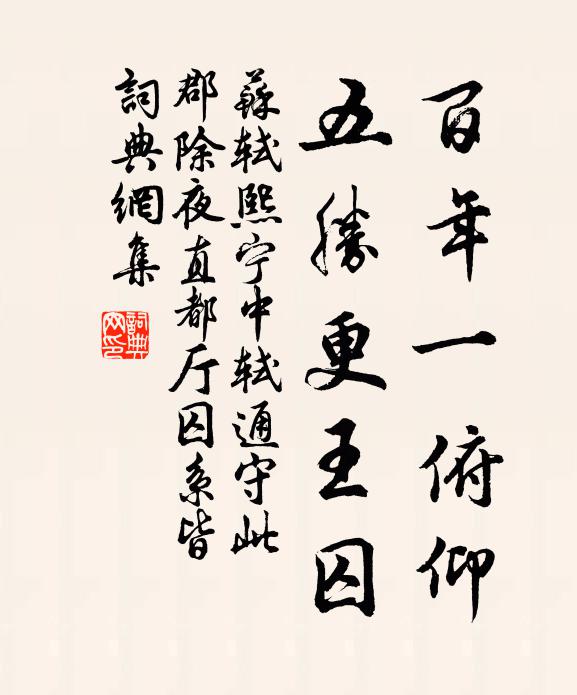 百年一俯仰
五勝更王囚
蘇軾熙宁中軾通守此
郡除夜直都厅囚系皆
詞典網集
詞典
网印